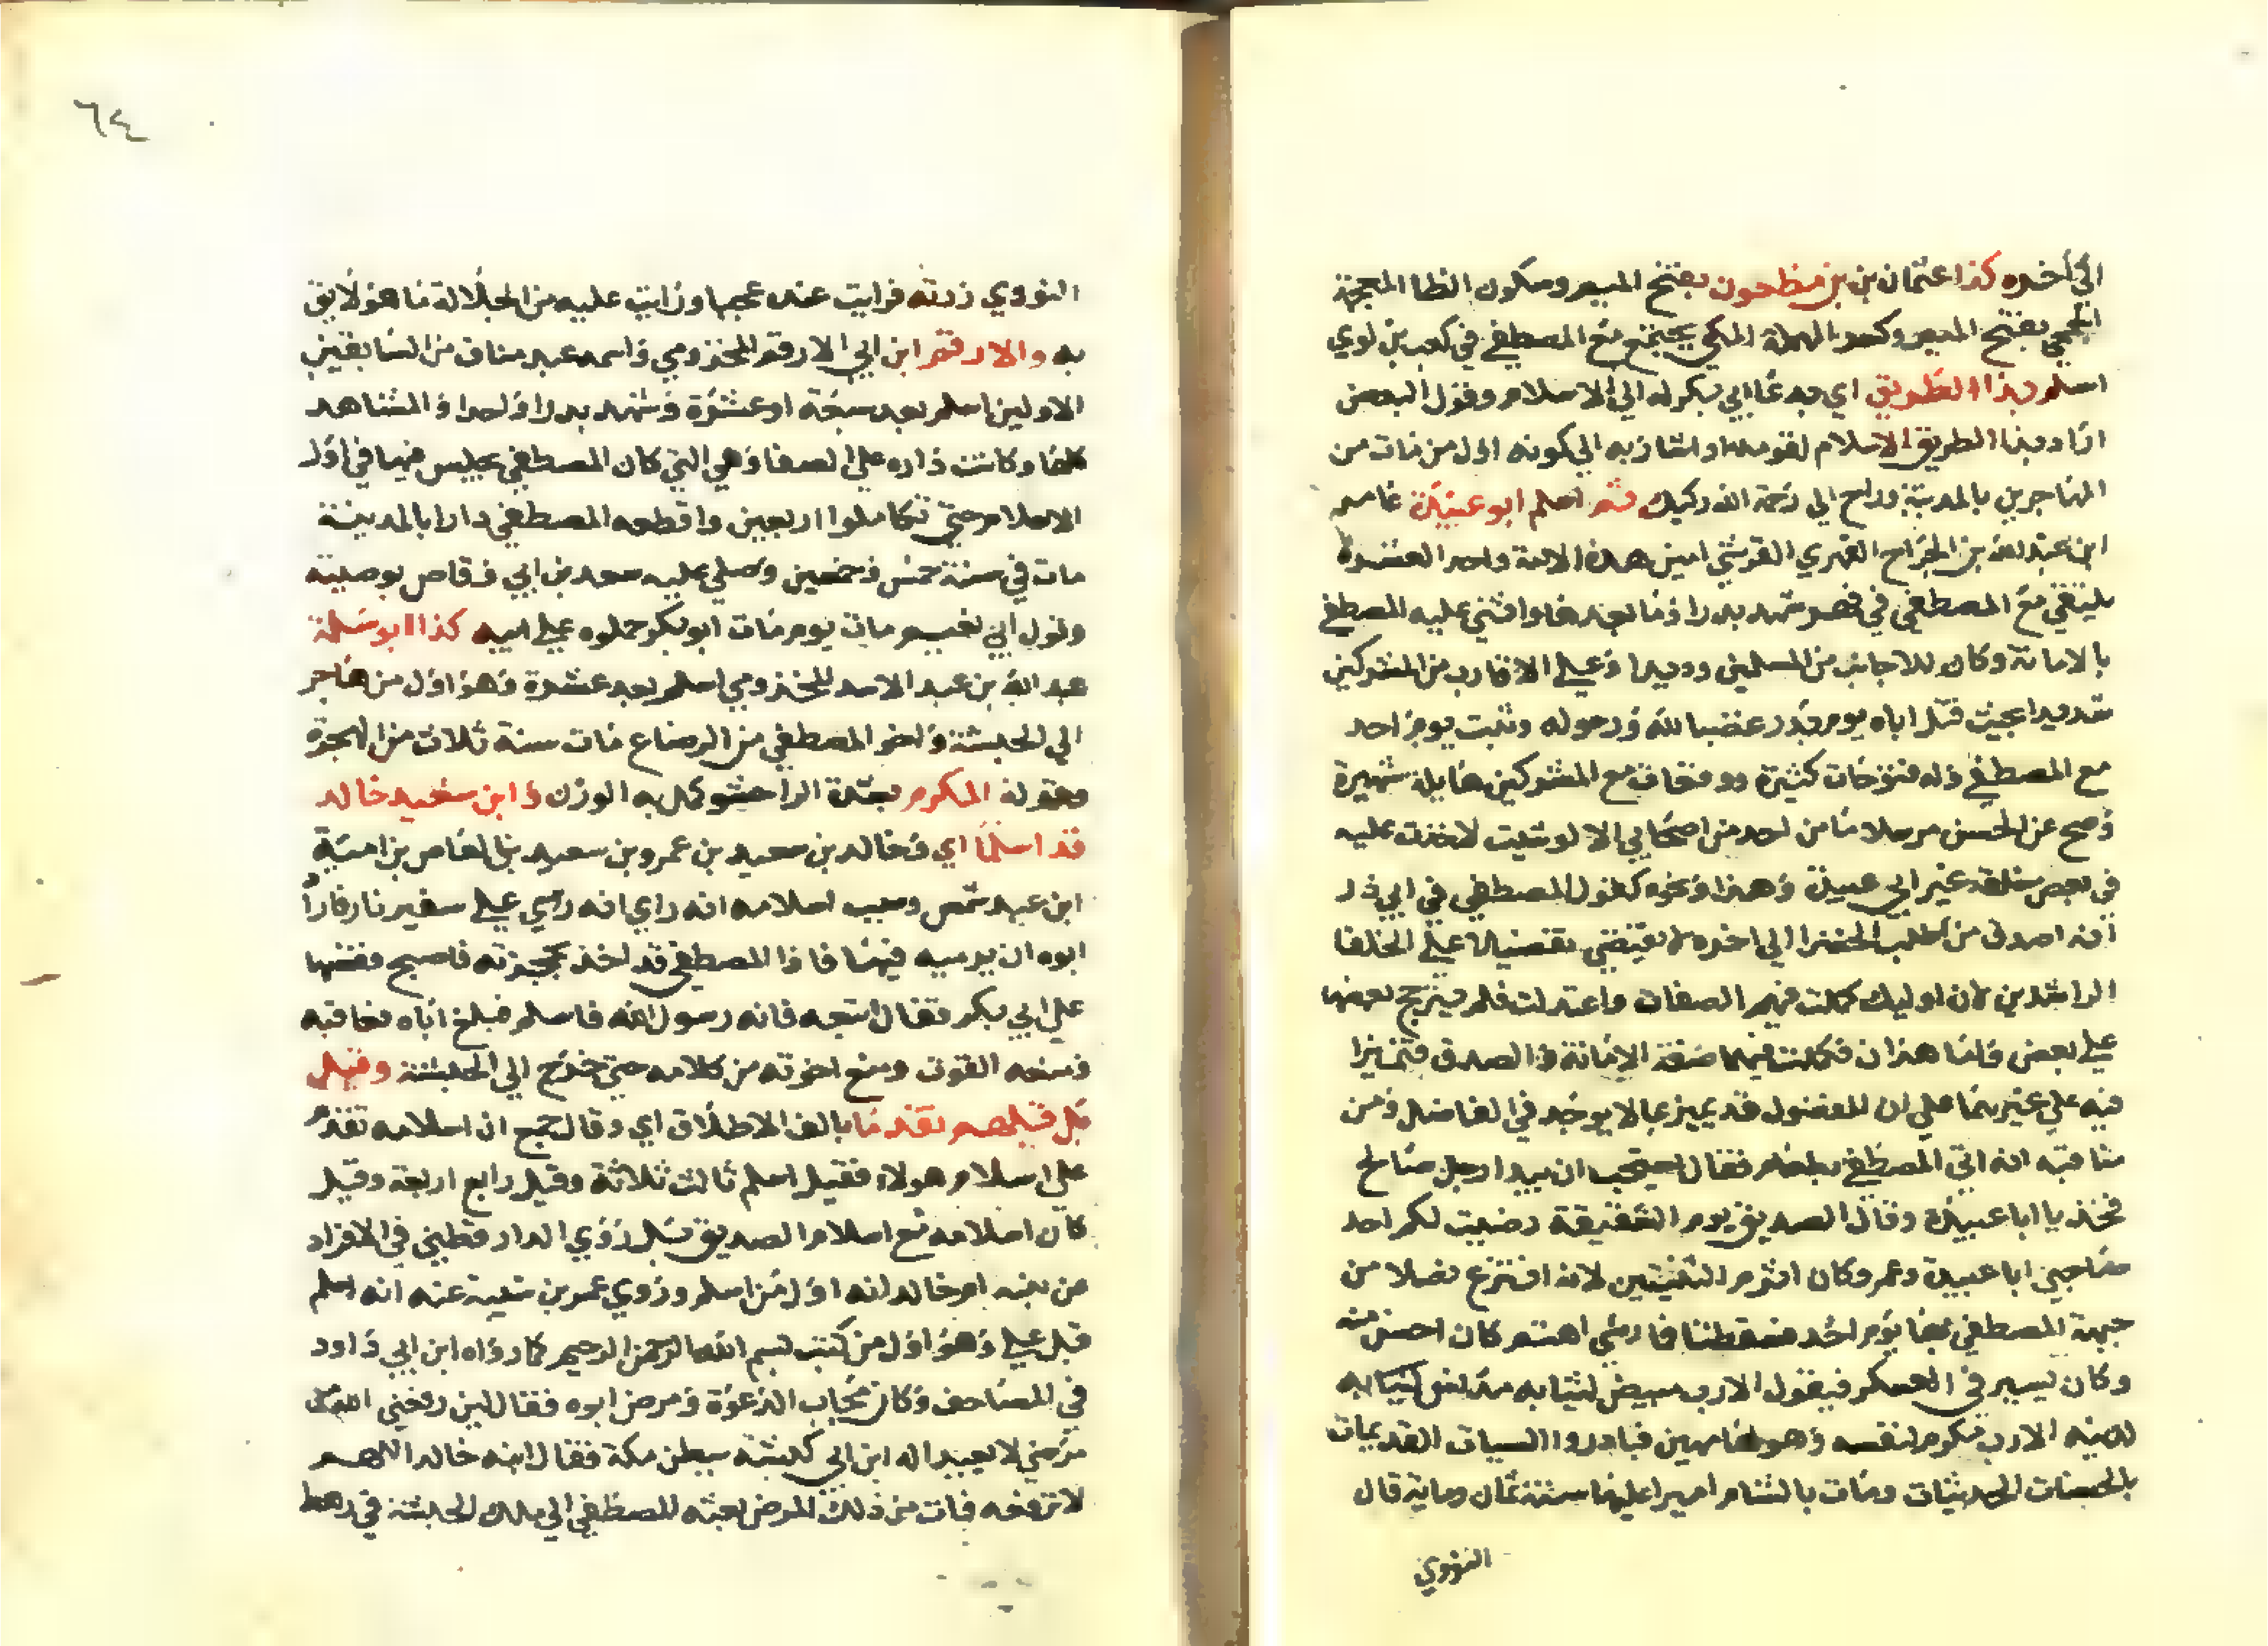 الي اخره كذا عثمان بن بن مظعون بفتح الميم وسكون الظا المعجمة
الجمحي بفتح الميم وكسر المهملة المكي يجتمع مع المصطفي في كعب بن لوي
اسلم بهذا الطريق اي بدعا ابي بكر له الي الاسلام وقول البعض
اراد بهذا الطريق الاسلام لقومه او اشار به الي كونه اول من مات من
المهاجرين بالمدينة وراح الي رحمة الله ركيك ثم اسلم ابو عبيدة عامر
ابن عبد الله بن الجراح الفهري القرشي امين هذه الامة واحد العشرة
يلتقي مع المصطفي في فهر شهد بدرا وما بعدها واثني عليه المصطفي
بالامانة وكان للاجانب من المسلمين وديدا وعلي الاقارب من المشركين
شديدا بحيث قتل اباه يوم بدر غضبا لله ورسوله وثبت يوم احد
مع المصطفي وله فتوحات كثيرة ووقعات مع المشركين هايلة شهيرة
وصح عن الحسن مرسلا ما من احد من اصحابي الا لو شيت لاخذت عليه
في بعض خلقه غير ابي عبيدة وهذا ونحوه كقول المصطفي في ابي ذر
انه اصدق من اظلت الخضرا الي اخره لا يقتضي تفضيلا علي الخلفا
الراشدين لان اوليك كملت فيهم الصفات واعتدلت فلم يترجح بعضها
علي بعض واما هذان فكملت فيهما صفة الامانة والصدق فتمايزا
فيه علي غيرهما علي ان المفضول قد يميز بما لا يوجد في الفاضل ومن
مناقبه انه اتي المصطفي بطعام فقال يستحب ان يبدا رجل صالح
فخذ يا ابا عبيدة وقال الصديق يوم السقيفة رضيت لكم احد
صاحبي ابا عبيدة وعمر وكان اثرم الثنيتين لانه انتزع نصلا من
جبهة المصطفي بها يوم احد فسقطتا فما رئي اهتم كان احسن منه
وكان يسير في العسكر فيقول الا رب مبيض لثيابه مدنس
لدينه الا رب مكرم لنفسه وهو لها مهين فبادروا السيات القديمات
بالحسنات الحديثات ومات بالشام اميرا عليها سنة ثمان وماية قال
النووي
٦٢٤
النووي زرته فرايت عنده عجبا ورايت عليه من الجلالة ما هو لايق
به والارقم ابن ابي الارقم المخزومي واسمه عبد مناف من السابقين
الاولين اسلم بعد سبعة او عشرة وشهد بدرا واحدا والمشاهد
كلها وكانت داره علي الصفا وهي التي كان المصطفي يجلس فيها في اول
الاسلام حتي تكاملوا اربعين واقطعه المصطفي دارا بالمدينة
مات في سنة خمس وخمسين وصلي عليه سعد بن ابي وقاص بوصيته
وقول ابي نعيم مات يوم مات ابو بكر حملوه علي ابيه كذا ابو سلمة
عبد الله بن عبد الاسد المخزومي اسلم بعد عشرة وهو اول من هاجر
الي الحبشة واخو المصطفي من الرضاع مات سنة ثلاث من الهجرة
وقوله المكرم بشدة الرا حشو كمل به الوزن وابن سعيد خالد
قد اسلما اي وخالد بن سعيد بن عمرو بن سعيد بن العاص بن امية
ابن عبد شمس وسبب اسلامه انه راي انه رمي علي سفير نار فاراد
ابوه ان يرميه فيها فاذا المصطفي قد اخذ بحجزته فاصبح فقصها
علي ابي بكر فقال اتبعه فانه رسول الله فاسلم فبلغ اباه فعاقبه
ومنعه القوت ومنع اخوته من كلامه حتي خرج الي الحبشة وقيل
بل قبلهم تقدما بالف الاطلاق اي وقال جمع ان اسلامه تقدم
علي اسلام هولاء فقيل اسلم ثالث ثلاثة وقيل رابع اربعة وقيل
كان اسلامه مع اسلام الصديق بل روي الدارقطني في الافراد
عن بنته ام خالد انه اول من اسلم وروي عمر بن شيبة عنه انه اسلم
قبل علي وهو اول من كتب بسم الله الرحمن الرحيم كما رواه ابن ابي داود
في المصاحف وكان مجاب الدعوة ومرض ابوه فقال لين رفعني الله من
مرضي لا يعبد اله ابن ابي كبشة ببطن مكة فقال ابنه خالد اللهم
لا ترفعه فمات من ذلك المرض بعثه المصطفي الي ملك الحبشة في رهط